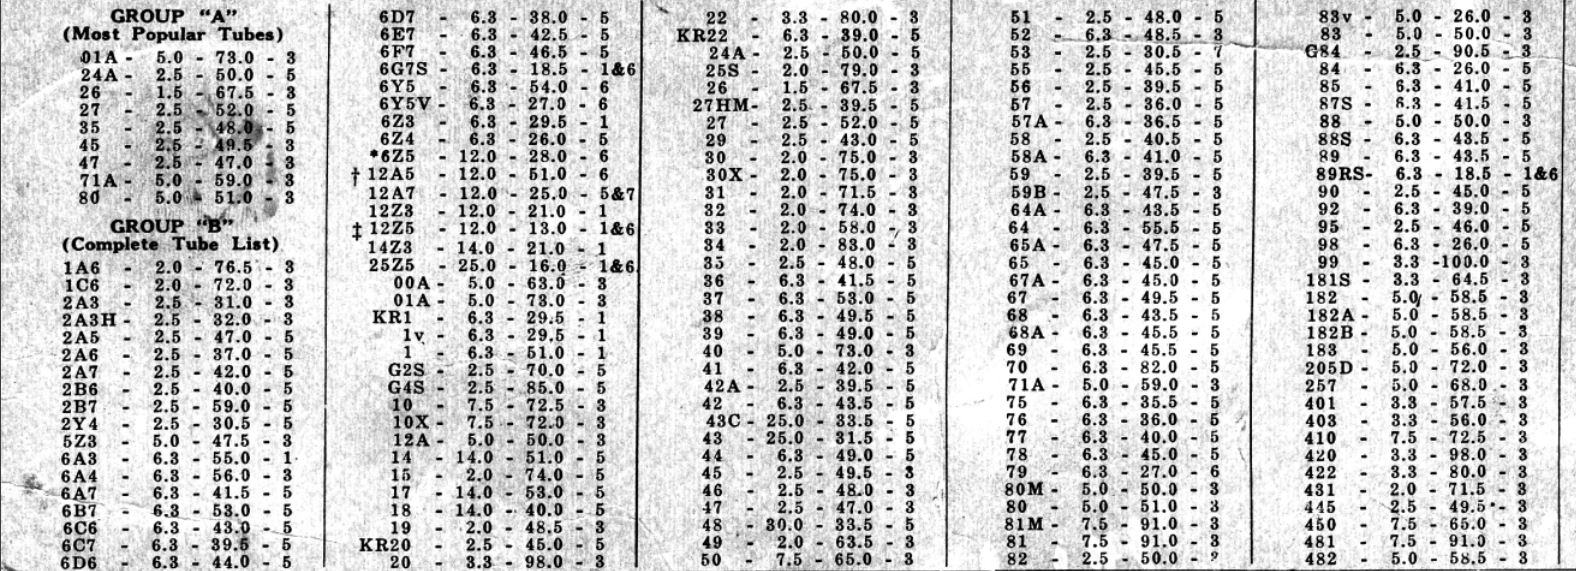 GROUP "A"
(Most Popular Tubes)
01A - 5.0 - 73.0 - 3
24A - 2.5 - 50.0 - 5
26 - 1.5 - 67.5 - 3
27 - 2.5 - 52.0 - 5
35 - 2.5 - 48.0 - 5
45 - 2.5 - 49.5 - 3
47 - 2.5 - 47.0 - 3
71A - 5.0 - 59.0 - 3
80 - 5.0 - 51.0 - 3
GROUP "B"
(Complete Tube List)
1A6 - 2.0 - 76.5 - 3
1C6 - 2.0 - 72.0 - 3
2A3 - 2.5 - 31.0 - 3
2A3H - 2.5 - 32.0 - 3
2A5 - 2.5 - 47.0 - 5
2A6 - 2.5 - 37.0 - 5
2A7 - 2.5 - 42.0 - 5
2B6 - 2.5 - 40.0 - 5
2B7 - 2.5 - 59.0 - 5
2Y4 - 2.5 - 30.5 - 5
5Z3 - 5.0 - 47.5 - 3
6A3 - 6.3 - 55.0 - 1
6A4 - 6.3 - 56.0 - 3
6A7 - 6.3 - 41.5 - 5
6B7 - 6.3 - 53.0 - 5
6C6 - 6.3 - 43.0 - 5
6C7 - 6.3 - 39.5 - 5
6D6 - 6.3 - 44.0 - 5
6D7 - 6.3 - 38.0 - 5
6E7 - 6.3 - 42.5 - 5
6F7 - 6.3 - 46.5 - 5
6G7S - 6.3 - 18.5 - 1&6
6Y5 - 6.3 - 54.0 - 6
6Y5V - 6.3 - 27.0 - 6
6Z3 - 6.3 - 29.5 - 1
6Z4 - 6.3 - 26.0 - 5
*6Z5 - 12.0 - 28.0 - 6
† 12A5 - 12.0 - 51.0 - 6
12A7 - 12.0 - 25.0 - 5&7
12Z3 - 12.0 - 21.0 - 1
‡ 12Z5 - 12.0 - 13.0 - 1&6
14Z3 - 14.0 - 21.0 - 1
25Z5 - 25.0 - 16.0 - 1&6
00A - 5.0 - 63.0 - 3
01A - 5.0 - 73.0 - 3
KR1 - 6.3 - 29.5 - 1
1v - 6.3 - 29.5 - 1
1 - 6.3 - 51.0 - 1
G2S - 2.5 - 70.0 - 5
G4S - 2.5 - 85.0 - 5
10 - 7.5 - 72.5 - 3
10X - 7.5 - 72.0 - 3
12A - 5.0 - 50.0 - 3
14 - 14.0 - 51.0 - 5
15 - 2.0 - 74.0 - 5
17 - 14.0 - 53.0 - 5
18 - 14.0 - 40.0 - 5
19 - 2.0 - 48.5 - 3
KR20 - 2.5 - 45.0 - 5
20 - 3.3 - 98.0 - 3
22 - 3.3 - 80.0 - 3
KR22 - 6.3 - 39.0 - 5
24A - 2.5 - 50.0 - 5
25S - 2.0 - 79.0 - 3
26 - 1.5 - 67.5 - 3
27HM - 2.5 - 39.5 - 5
27 - 2.5 - 52.0 - 5
29 - 2.5 - 43.0 - 5
30 - 2.0 - 75.0 - 3
30X - 2.0 - 75.0 - 3
31 - 2.0 - 71.5 - 3
32 - 2.0 - 74.0 - 3
33 - 2.0 - 58.0 - 3
34 - 2.0 - 83.0 - 3
35 - 2.5 - 48.0 - 5
36 - 6.3 - 41.5 - 5
37 - 6.3 - 53.0 - 5
38 - 6.3 - 49.5 - 5
39 - 6.3 - 49.0 - 5
40 - 5.0 - 73.0 - 3
41 - 6.3 - 42.0 - 5
42A - 2.5 - 39.5 - 5
42 - 6.3 - 43.5 - 5
43C - 25.0 - 33.5 - 5
43 - 25.0 - 31.5 - 5
44 - 6.3 - 49.0 - 5
45 - 2.5 - 49.5 - 3
46 - 2.5 - 48.0 - 3
47 - 2.5 - 47.0 - 3
48 - 30.0 - 33.5 - 5
49 - 2.0 - 63.5 - 3
50 - 7.5 - 65.0 - 3
51 - 2.5 - 48.0 - 5
52 - 6.3 - 48.5 - 3
53 - 2.5 - 30.5 - 7
55 - 2.5 - 45.5 - 5
56 - 2.5 - 39.5 - 5
57 - 2.5 - 36.0 - 5
57A - 6.3 - 36.5 - 5
58 - 2.5 - 40.5 - 5
58A - 6.3 - 41.0 - 5
59 - 2.5 - 39.5 - 5
59B - 2.5 - 47.5 - 3
64A - 6.3 - 43.5 - 5
64 - 6.3 - 55.5 - 5
65A - 6.3 - 47.5 - 5
65 - 6.3 - 45.0 - 5
67A - 6.3 - 45.0 - 5
67 - 6.3 - 49.5 - 5
68 - 6.3 - 43.5 - 5
68A - 6.3 - 45.5 - 5
69 - 6.3 - 45.5 - 5
70 - 6.3 - 82.0 - 5
71A - 5.0 - 59.0 - 3
75 - 6.3 - 35.5 - 5
76 - 6.3 - 36.0 - 5
77 - 6.3 - 40.0 - 5
78 - 6.3 - 45.0 - 5
79 - 6.3 - 27.0 - 6
80M - 5.0 - 50.0 - 3
80 - 5.0 - 51.0 - 3
81M - 7.5 - 91.0 - 3
81 - 7.5 - 91.0 - 3
82 - 2.5 - 50.0 -
83v - 5.0 - 26.0 - 3
83 - 5.0 - 50.0 - 3
G84 - 2.5 - 90.5 - 3
84 - 6.3 - 26.0 - 5
85 - 6.3 - 41.0 - 5
87S - 6.3 - 41.5 - 5
88 - 5.0 - 50.0 - 3
88S - 6.3 - 43.5 - 5
89 - 6.3 - 43.5 - 5
89RS - 6.3 - 18.5 - 1&6
90 - 2.5 - 45.0 - 5
92 - 6.3 - 39.0 - 5
95 - 2.5 - 46.0 - 5
98 - 6.3 - 26.0 - 5
99 - 3.3 -100.0 - 3
181S - 3.3 - 64.5 - 3
182 - 5.0 - 58.5 - 3
182A - 5.0 - 58.5 - 3
182B - 5.0 - 58.5 - 3
183 - 5.0 - 56.0 - 3
205D - 5.0 - 72.0 - 3
257 - 5.0 - 68.0 - 3
401 - 3.3 - 57.5 - 3
403 - 3.3 - 56.0 - 3
410 - 7.5 - 72.5 - 3
420 - 3.3 - 98.0 - 3
422 - 3.3 - 80.0 - 3
431 - 2.0 - 71.5 - 3
445 - 2.5 - 49.5 - 3
450 - 7.5 - 65.0 - 3
481 - 7.5 - 91.0 - 3
482 - 5.0 - 58.5 - 3